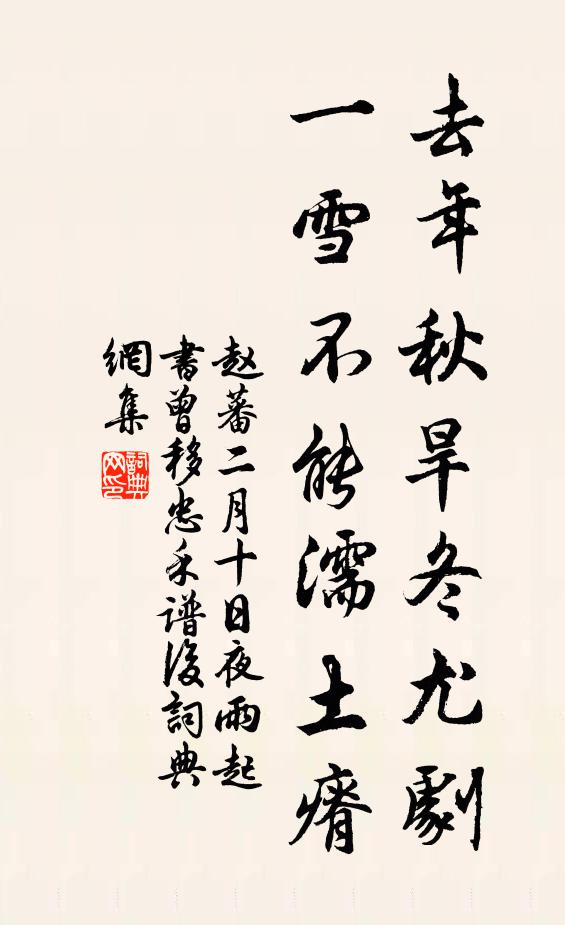 去年秋旱冬尤劇
一雪不能濡土瘠
赵蕃二月十日夜雨起
書曾移忠禾谱後詞典
網集
詞典
网印